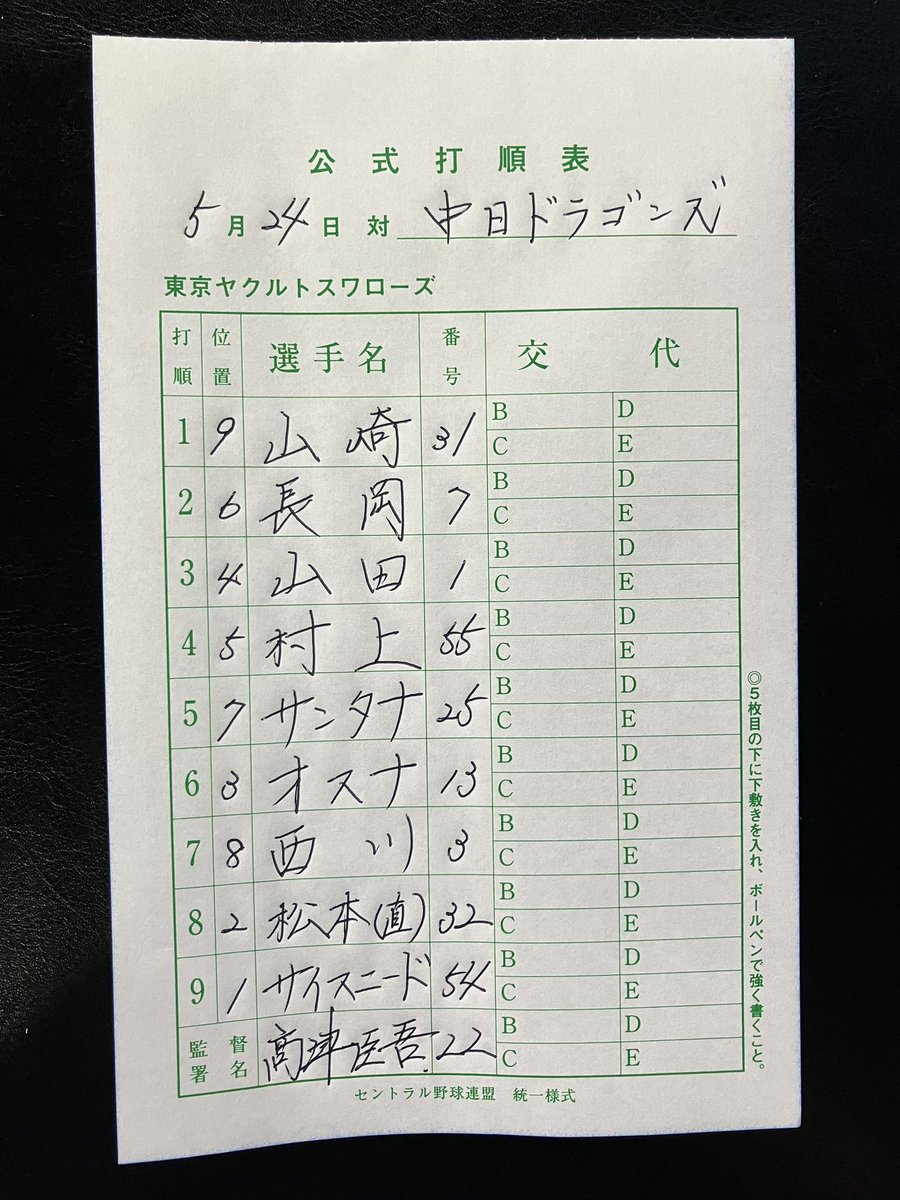 公式打順表
5月24日 対 中日ドラゴンズ
東京ヤクルトスワローズ
打順 位置 選手名 番号 交代
1 9 山崎 31 B D C E
2 6 長岡 7 B D C E
3 4 山田 1 B D C E
4 5 村上 55 B D C E
5 7 サンタナ 25 B D C E
6 3 オスナ 13 B D C E
7 8 西川 3 B D C E
8 2 松本(直) 32 B D C E
9 1 サイスニード 54 B D C E
監督署名 高津臣吾 22 B D C E
セントラル野球連盟 統一様式
◎5枚目の下に下敷きを入れ、ボールペンで強く書くこと。